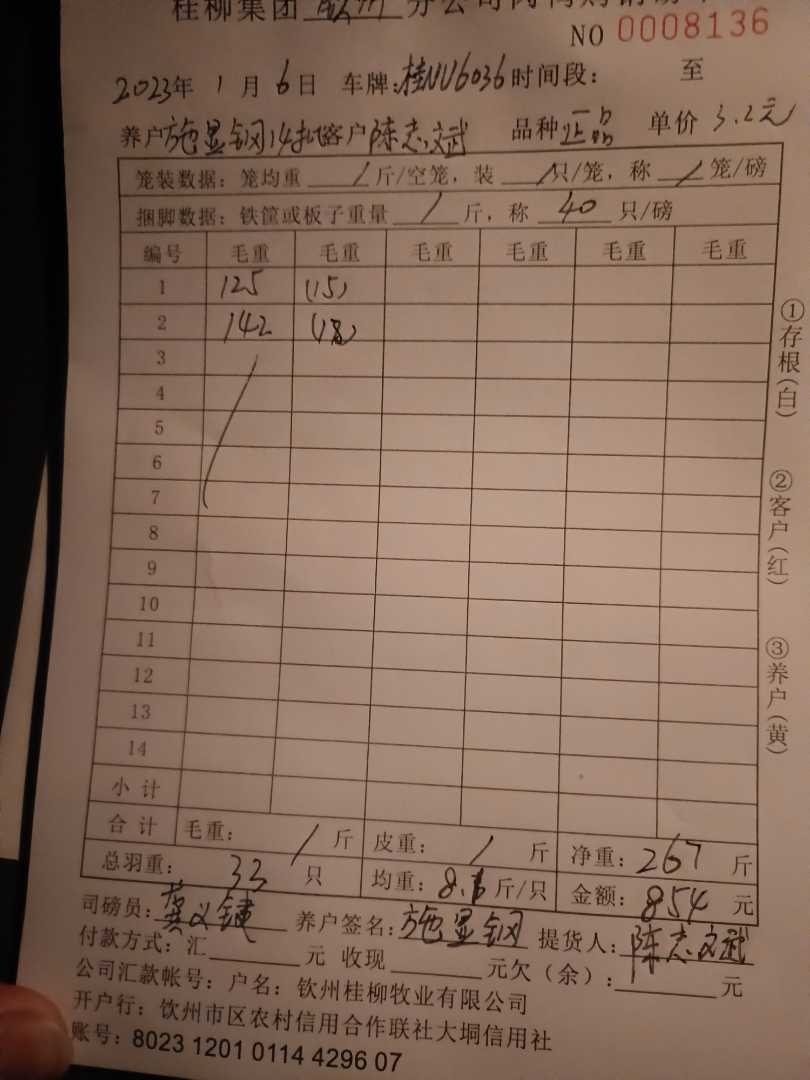 桂柳集团 钦州 分公司肉鸭购销磅单
NO 0008136
2023年 1 月 6 日 车牌:桂NU6036 时间段: 至
养户 施显钢14批 客户 陈志斌 品种 正品 单价 3.2元
笼装数据: 笼均重 / 斤/空笼, 装 / 只/笼, 称 / 笼/磅
捆脚数据: 铁筐或板子重量 / 斤, 称 40 只/磅
编号 毛重 毛重 毛重 毛重 毛重 毛重
1 125 (15)
2 142 (18)
3
4
5
6
7
8
9
10
11
12
13
14
小计
合计 毛重: / 斤 皮重: / 斤 净重: 267 斤
总羽重: 33 只 均重: 8.1 斤/只 金额: 854 元
司磅员: 养户签名: 施显钢 提货人: 陈志斌
付款方式: 汇 元 收现 元欠(余): 元
公司汇款帐号: 户名: 钦州桂柳牧业有限公司
开户行: 钦州市区农村信用合作联社大垌信用社
账号: 8023 1201 0114 4296 07
①存根(白)
②客户(红)
③养户(黄)